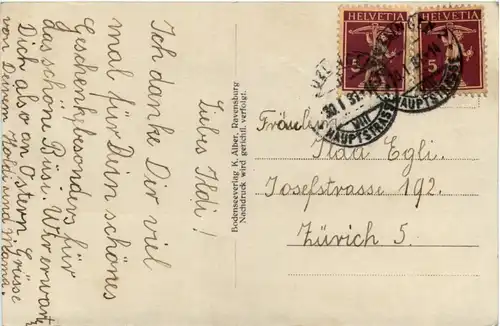 Liebes Ildi!
Ich danke Dir viel
mal für Dein schönes
Geschenk, besonders für
das schöne Büsi. Wir erwarten
Dich also an Ostern. Grüsse
von Deinem Holdi und Mama.
Bodenseeverlag K. Alber, Ravensburg
Nachdruck wird gerichtl. verfolgt.
HELVETIA
5
HELVETIA
5
HAUPTSTRASSE
HAUPTSTRASSE
Fräulein
Ilda Egli.
Josefstrasse 192.
Zürich 5.